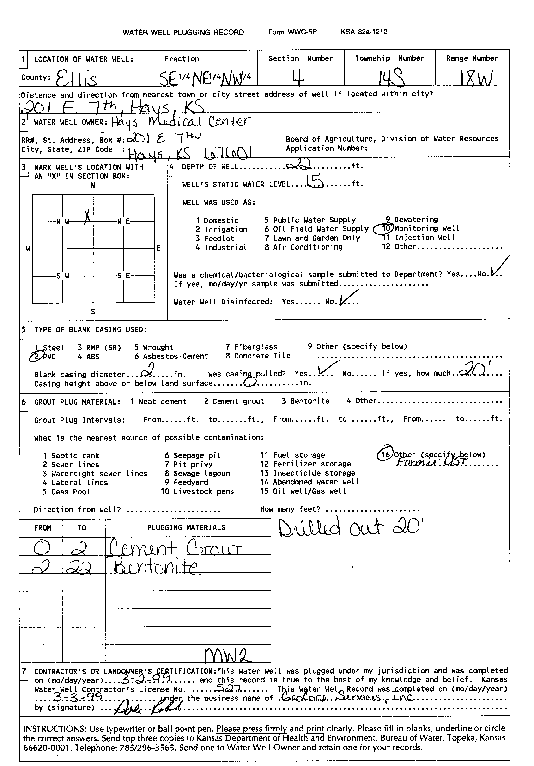 WATER WELL PLUGGING RECORD Form WWC-5P KSA 82a-1212
1 LOCATION OF WATER WELL: Fraction Section Number Township Number Range Number
County: Ellis SE 1/4 NE 1/4 NW 1/4 4 14S 18W
Distance and direction from nearest town or city street address of well if located within city?
201 E 7th, Hays, KS
2 WATER WELL OWNER: Hays Medical Center
RR#, St. Address, Box #: 201 E 7th Board of Agriculture, Division of Water Resources
City, State, ZIP Code : Hays, KS 67601 Application Number:
3 MARK WELL'S LOCATION WITH AN "X" IN SECTION BOX:
N
X
N W N E
W E
S W S E
S
4 DEPTH OF WELL 22 ft.
WELL'S STATIC WATER LEVEL 15 ft.
WELL WAS USED AS:
1 Domestic 5 Public Water Supply 9 Dewatering
2 Irrigation 6 Oil Field Water Supply 10 Monitoring Well
3 Feedlot 7 Lawn and Garden Only 11 Injection Well
4 Industrial 8 Air Conditioning 12 Other
Was a chemical/bacteriological sample submitted to Department? Yes....No ✓
If yes, mo/day/yr sample was submitted
Water Well Disinfected: Yes...... No ✓
5 TYPE OF BLANK CASING USED:
1 Steel 3 RMP (SR) 5 Wrought 7 Fiberglass 9 Other (specify below)
2 PVC 4 ABS 6 Asbestos-Cement 8 Concrete Tile
Blank casing diameter 2 in. Was casing pulled? Yes ✓ No...... If yes, how much 20'
Casing height above or below land surface 0 in.
6 GROUT PLUG MATERIAL: 1 Neat cement 2 Cement grout 3 Bentonite 4 Other
Grout Plug Intervals: From.....ft. to.....ft., From.....ft. to.....ft., From..... to......ft.
What is the nearest source of possible contamination:
1 Septic tank 6 Seepage pit 11 Fuel storage 16 Other (specify below)
2 Sewer lines 7 Pit privy 12 Fertilizer storage Former UST
3 Watertight sewer lines 8 Sewage lagoon 13 Insecticide storage
4 Lateral lines 9 Feedyard 14 Abandoned water well
5 Cess Pool 10 Livestock pens 15 Oil well/Gas well
Direction from well? How many feet?
FROM TO PLUGGING MATERIALS
Drilled out 20'
0 2 Cement Grout
2 22 Bentonite
MW2
7 CONTRACTOR'S OR LANDOWNER'S CERTIFICATION: This water well was plugged under my jurisdiction and was completed
on (mo/day/year) 3-2-99 and this record is true to the best of my knowledge and belief. Kansas
Water Well Contractor's License No. 527 This Water Well Record was completed on (mo/day/year)
3-3-99 under the business name of Services, Inc
by (signature)
INSTRUCTIONS: Use typewriter or ball point pen. Please press firmly and print clearly. Please fill in blanks, underline or circle
the correct answers. Send top three copies to Kansas Department of Health and Environment, Bureau of Water, Topeka, Kansas
66620-0001. Telephone: 785/296-3565. Send one to Water Well Owner and retain one for your records.